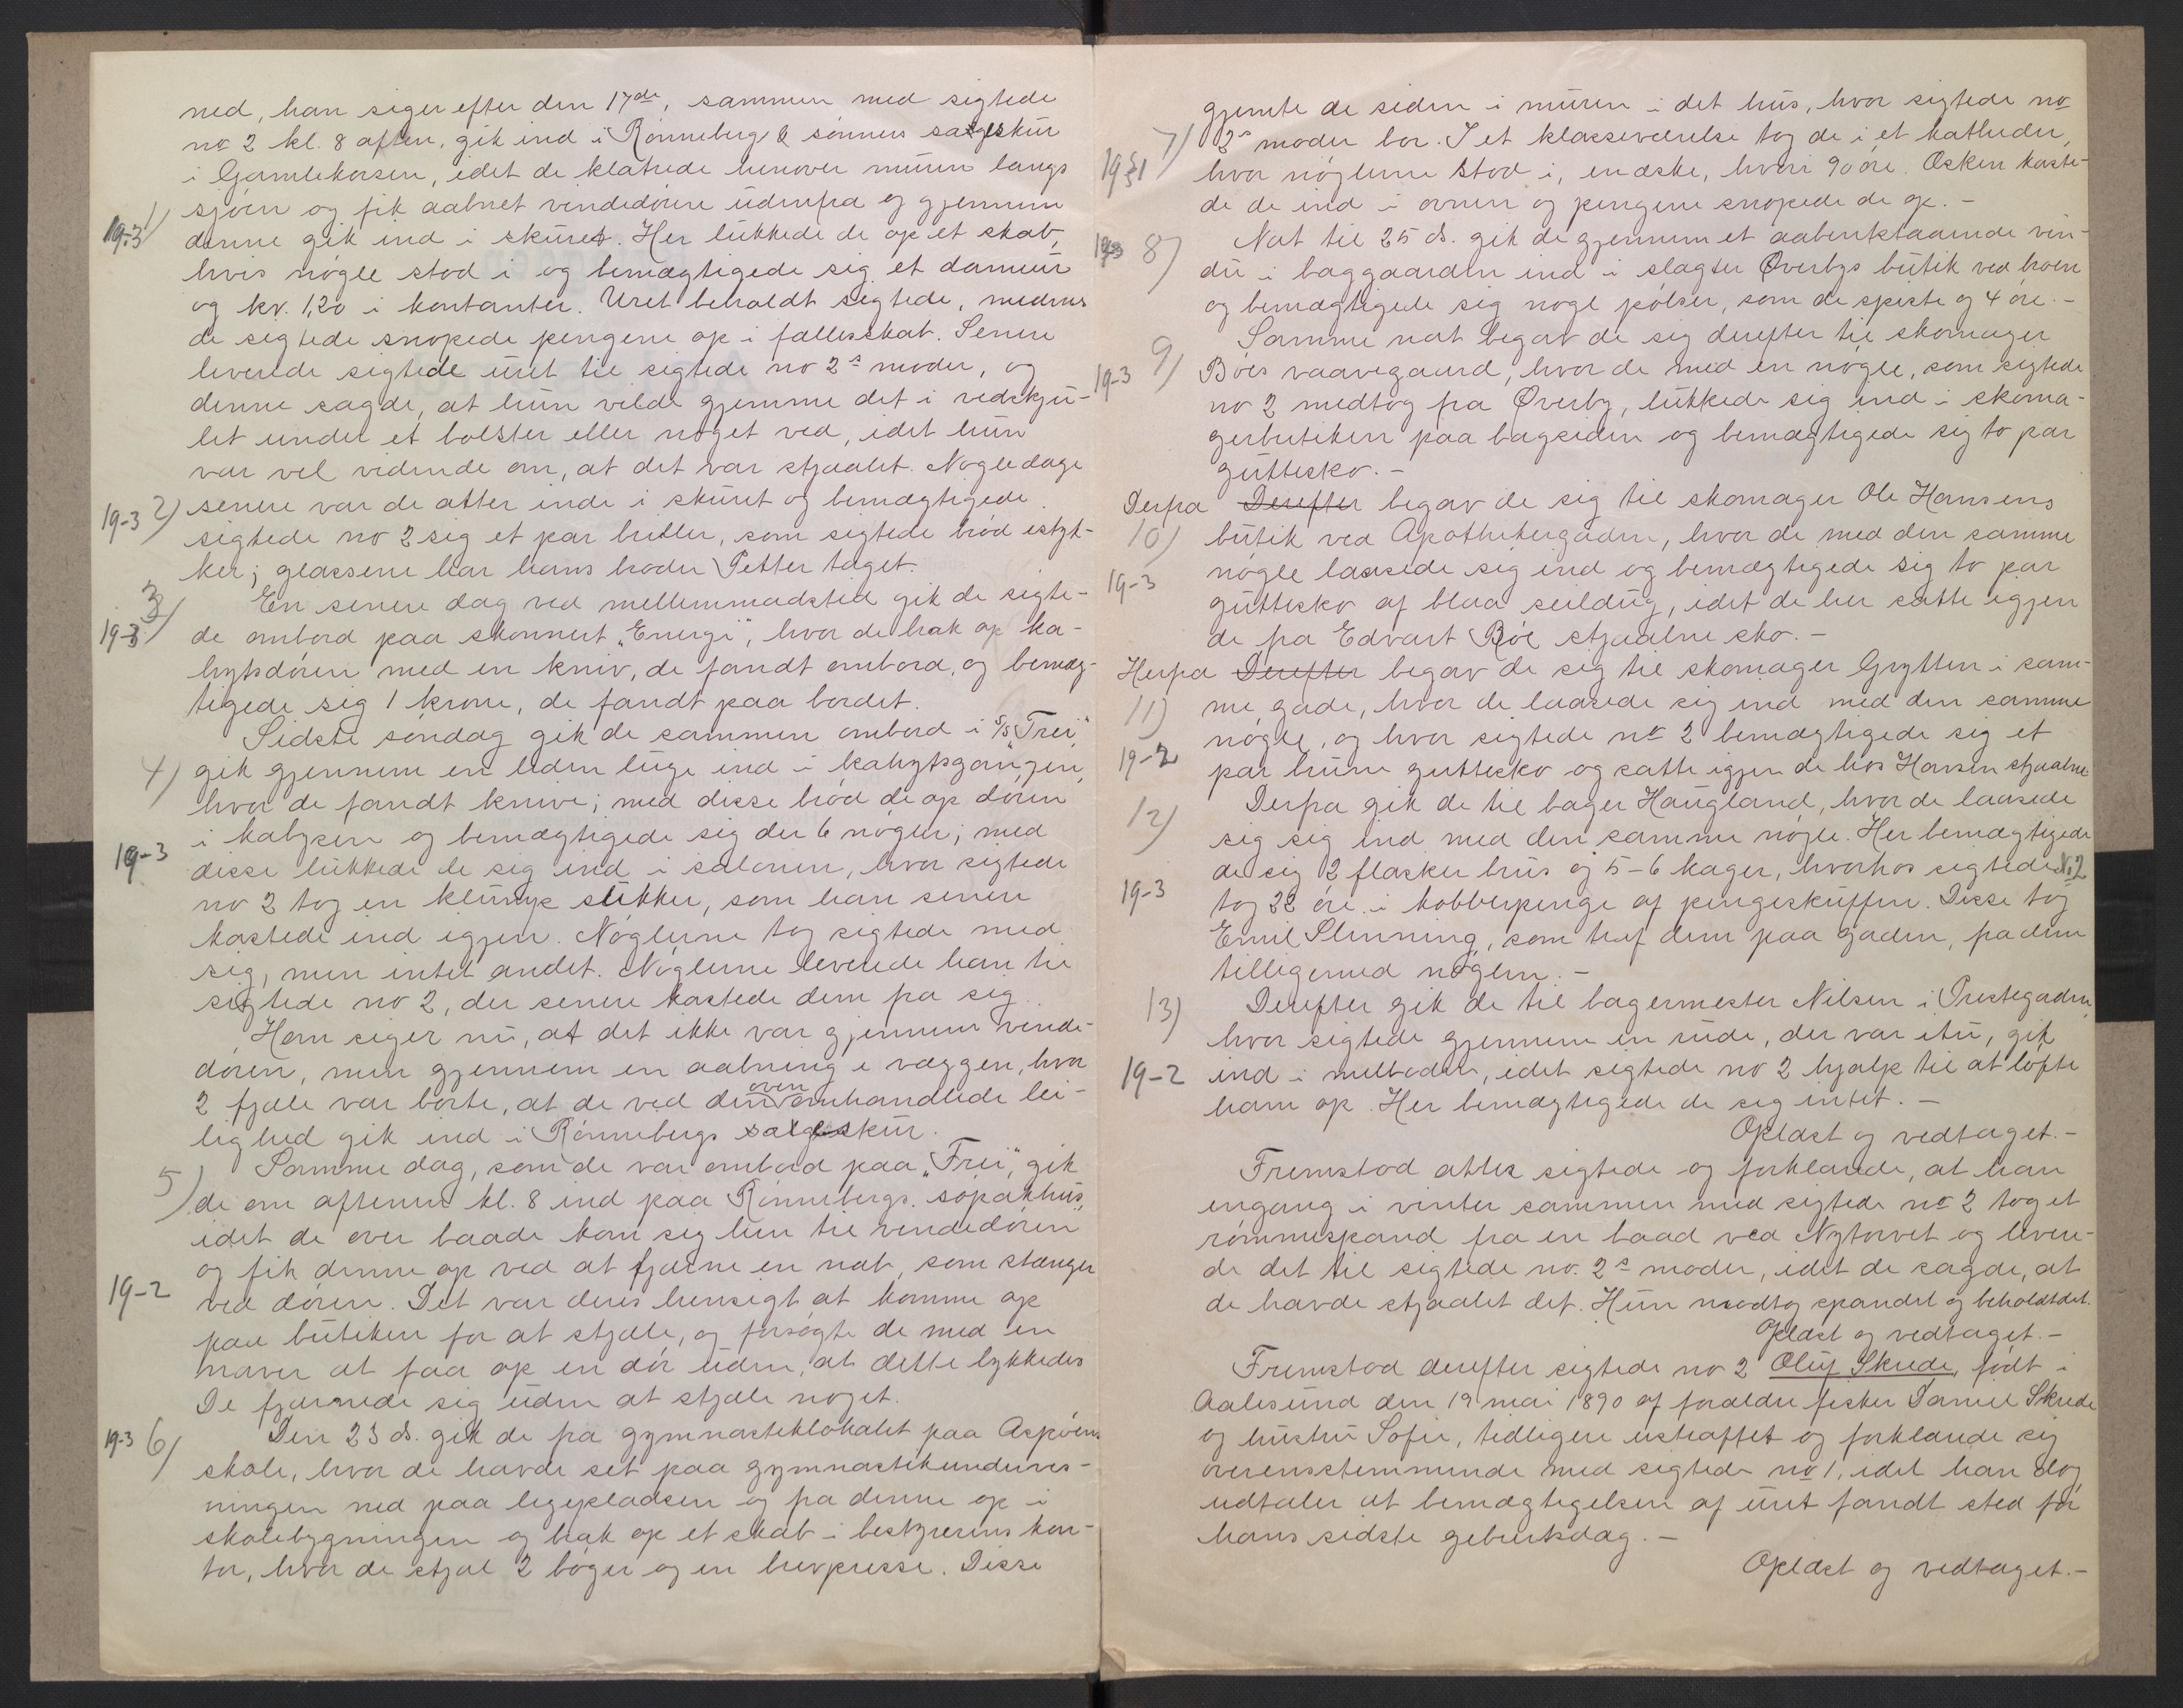 ned, han siger efter den 17de, sammen med sigtede
no 2 kl. 8 aften, gik ind i Rønneberg & sønners salgsskur
i Gamlekorsen, idet de klatrede henover muren langs
sjøen og fik aabnet vindedøren udenfra og gjennem
19-3 1) denne gik ind i skuret. Her lukkede de op et skab,
hvis nøgle stod i og bemægtigede sig et dameur
og kr. 1,20 i kontanter. Uret beholdt sigtede, medens
de sigtede snopede pengene op i fællesskab. Senere
leverede sigtede uret til sigtede no 2s moder, og
denne sagde, at hun vilde gjemme det i vedskju-
let under et bolster eller noget ved, idet hun
var vel vidende om, at det var stjaalet. Nogle dage
19-3 2) senere var de atter inde i skuret og bemægtigede
sigtede no 2 sig et par briller, som sigtede brød istyk-
ker; glassene har hans broder Petter taget.
3) En senere dag ved mellemmadstid gik de sigte-
19-3 de ombord paa skonnert "Energi", hvor de brak op ka-
hytsdøren med en kniv, de fandt ombord, og bemæg-
tigede sig 1 krone, de fandt paa bordet.
Sidste søndag gik de sammen ombord i S/S "Frei",
4) gik gjennem en liden luge ind i kahytsgangen,
hvor de fandt knive; med disse brød de op døren
i kabysen og bemægtigede sig der 6 nøgler; med
19-3 disse lukkede de sig ind i salonen, hvor sigtede
no 2 tog en klump sukker, som han senere
kastede ind igjen. Nøglerne tog sigtede med
sig, men intet andet. Nøglerne leverede han til
sigtede no 2, der senere kastede dem fra sig.
Han siger nu, at det ikke var gjennem vinde-
døren, men gjennem en aabning i væggen, hvor
2 fjæle var borte, at de ved den ovenomhandlede lei-
lighed gik ind i Rønnebergs salgsskur.
5) Samme dag, som de var ombord paa "Frei", gik
de om aftenen kl. 8 ind paa Rønnebergs søpakhus,
idet de over baade kom sig hen til vindedøren
og fik denne op ved at fjærne en nab, som stænger
19-2 ved døren. Det var deres hensigt at komme op
paa butiken for at stjæle, og forsøgte de med en
naver at faa op en dør uden, at dette lykkedes
De fjærnede sig uden at stjæle noget.
19-3 6) Den 23 ds. gik de fra gymnastiklokalet paa Aspøens
skole, hvor de havde set paa gymnastikundervis-
ningen ned paa legepladsen og fra denne op i
skolebygningen og brak op et skab i bestyrerens kon-
tor, hvor de stjal 2 bøger og en brevpresse. Disse
gjemte de siden i muren i det hus, hvor sigtede no
7) 2s moder bor. I et klasseværelse tog de i et katheder,
hvor nøglerne stod i, en æske, hvori 90 øre. Æsken kaste-
de de ind i ovnen og pengene snopede de op. -
8) Nat til 25 ds. gik de gjennem et aabentstaaende vin-
du i baggaarden ind i slagter Øverbys butik ved broen
og bemægtigede sig nogle pølser, som de spiste og 4 øre. -
Samme nat begav de sig derefter til skomager
19-3 9) Böes vaavegaard, hvor de med en nøgle, som sigtede
no 2 medtog fra Øverby, lukkede sig ind i skoma-
gerbutiken paa bagsiden og bemægtigede sig to par
guttesko. -
Derfra Derefter begav de sig til skomager Ole Hansens
10) butik ved Apothekergaden, hvor de med den samme
nøgle laasede sig ind og bemægtigede sig to par
19-3 guttesko af blaa seildug, idet de her satte igjen
de fra Edvart Böe stjaalne sko. -
Herfra Derefter begav de sig til skomager Grytten i sam-
11) me gade, hvor de laasede sig ind med den samme
nøgle, og hvor sigtede no 2 bemægtigede sig et
19-2 par brune guttesko og satte igjen de hos Hansen stjaalne
12) Derfra gik de til bager Haugland, hvor de laasede
sig sig ind med den samme nøgle. Her bemægtigede
de sig 2 flasker brus og 5-6 kager, hvorhos sigtede N. 2
19-3 tog 22 øre i kobberpenge af pengeskuffen. Disse tog
Emil Slinning, som traf dem paa gaden, fra dem
tilligemed nøglen. -
13) Derefter gik de til bagermester Nilsen i Prestegaden,
hvor sigtede gjennem en rude, der var itu, gik
19-2 ind i melboden, idet sigtede no 2 hjalp til at løfte
ham op. Her bemægtigede de sig intet. -
Oplæst og vedtaget. -
Fremstod atter sigtede og forklarede, at han
engang i vinter sammen med sigtede no 2 tog et
rømmespand fra en baad ved Nytorvet og levere-
de det til sigtede no. 2s moder, idet de sagde, at
de havde stjaalet det. Hun modtog spandet og beholdt det.
Oplæst og vedtaget. -
Fremstod derefter sigtede no 2 Oluf Skrede, født i
Aalesund den 19 mai 1890 af forældre fisker Daniel Skrede
og hustru Sofie, tidligere ustraffet og forklarede sig
overensstemmende med sigtede no 1, idet han dog
udtaler at bemægtigelsen af uret fandt sted før
hans sidste geburtsdag. -
Oplæst og vedtaget. -